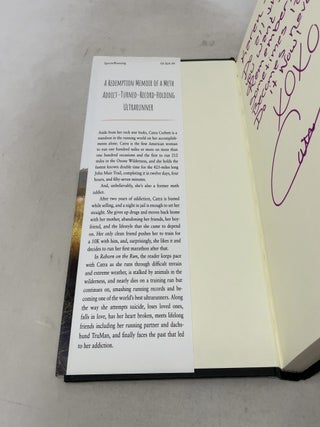 Sports/Running
US $24.99
A REDEMPTION MEMOIR OF A METH
ADDICT-TURNED-RECORD-HOLDING
ULTRARUNNER
Aside from her rock star looks, Catra Corbett is a
standout in the running world on her accomplish-
ments alone. Catra is the first American woman
to run over one hundred miles or more on more than
one hundred occasions and the first to run 212
miles in the Ozone Wilderness, and she holds the
fastest known double time for the 425-mile long
John Muir Trail, completing it in twelve days, four
hours, and fifty-seven minutes.
And, unbelievably, she's also a former meth
addict.
After two years of addiction, Catra is busted
while selling, and a night in jail is enough to set her
straight. She gives up drugs and moves back home
with her mother, abandoning her friends, her boy-
friend, and the lifestyle that she came to depend
on. Her only clean friend pushes her to train for
a 10K with him, and, surprisingly, she likes it and
decides to run her first marathon after that.
In Reborn on the Run, the reader keeps pace
with Catra as she runs through difficult terrain
and extreme weather, is stalked by animals in the
wilderness, and nearly dies on a training run but
continues on, smashing running records and be-
coming one of the world's best ultrarunners. Along
the way she attempts suicide, loses loved ones,
falls in love, has her heart broken, meets lifelong
friends including her running partner and dachs-
hund TruMan, and finally faces the past that led
to her addiction.
XOXO
Catra